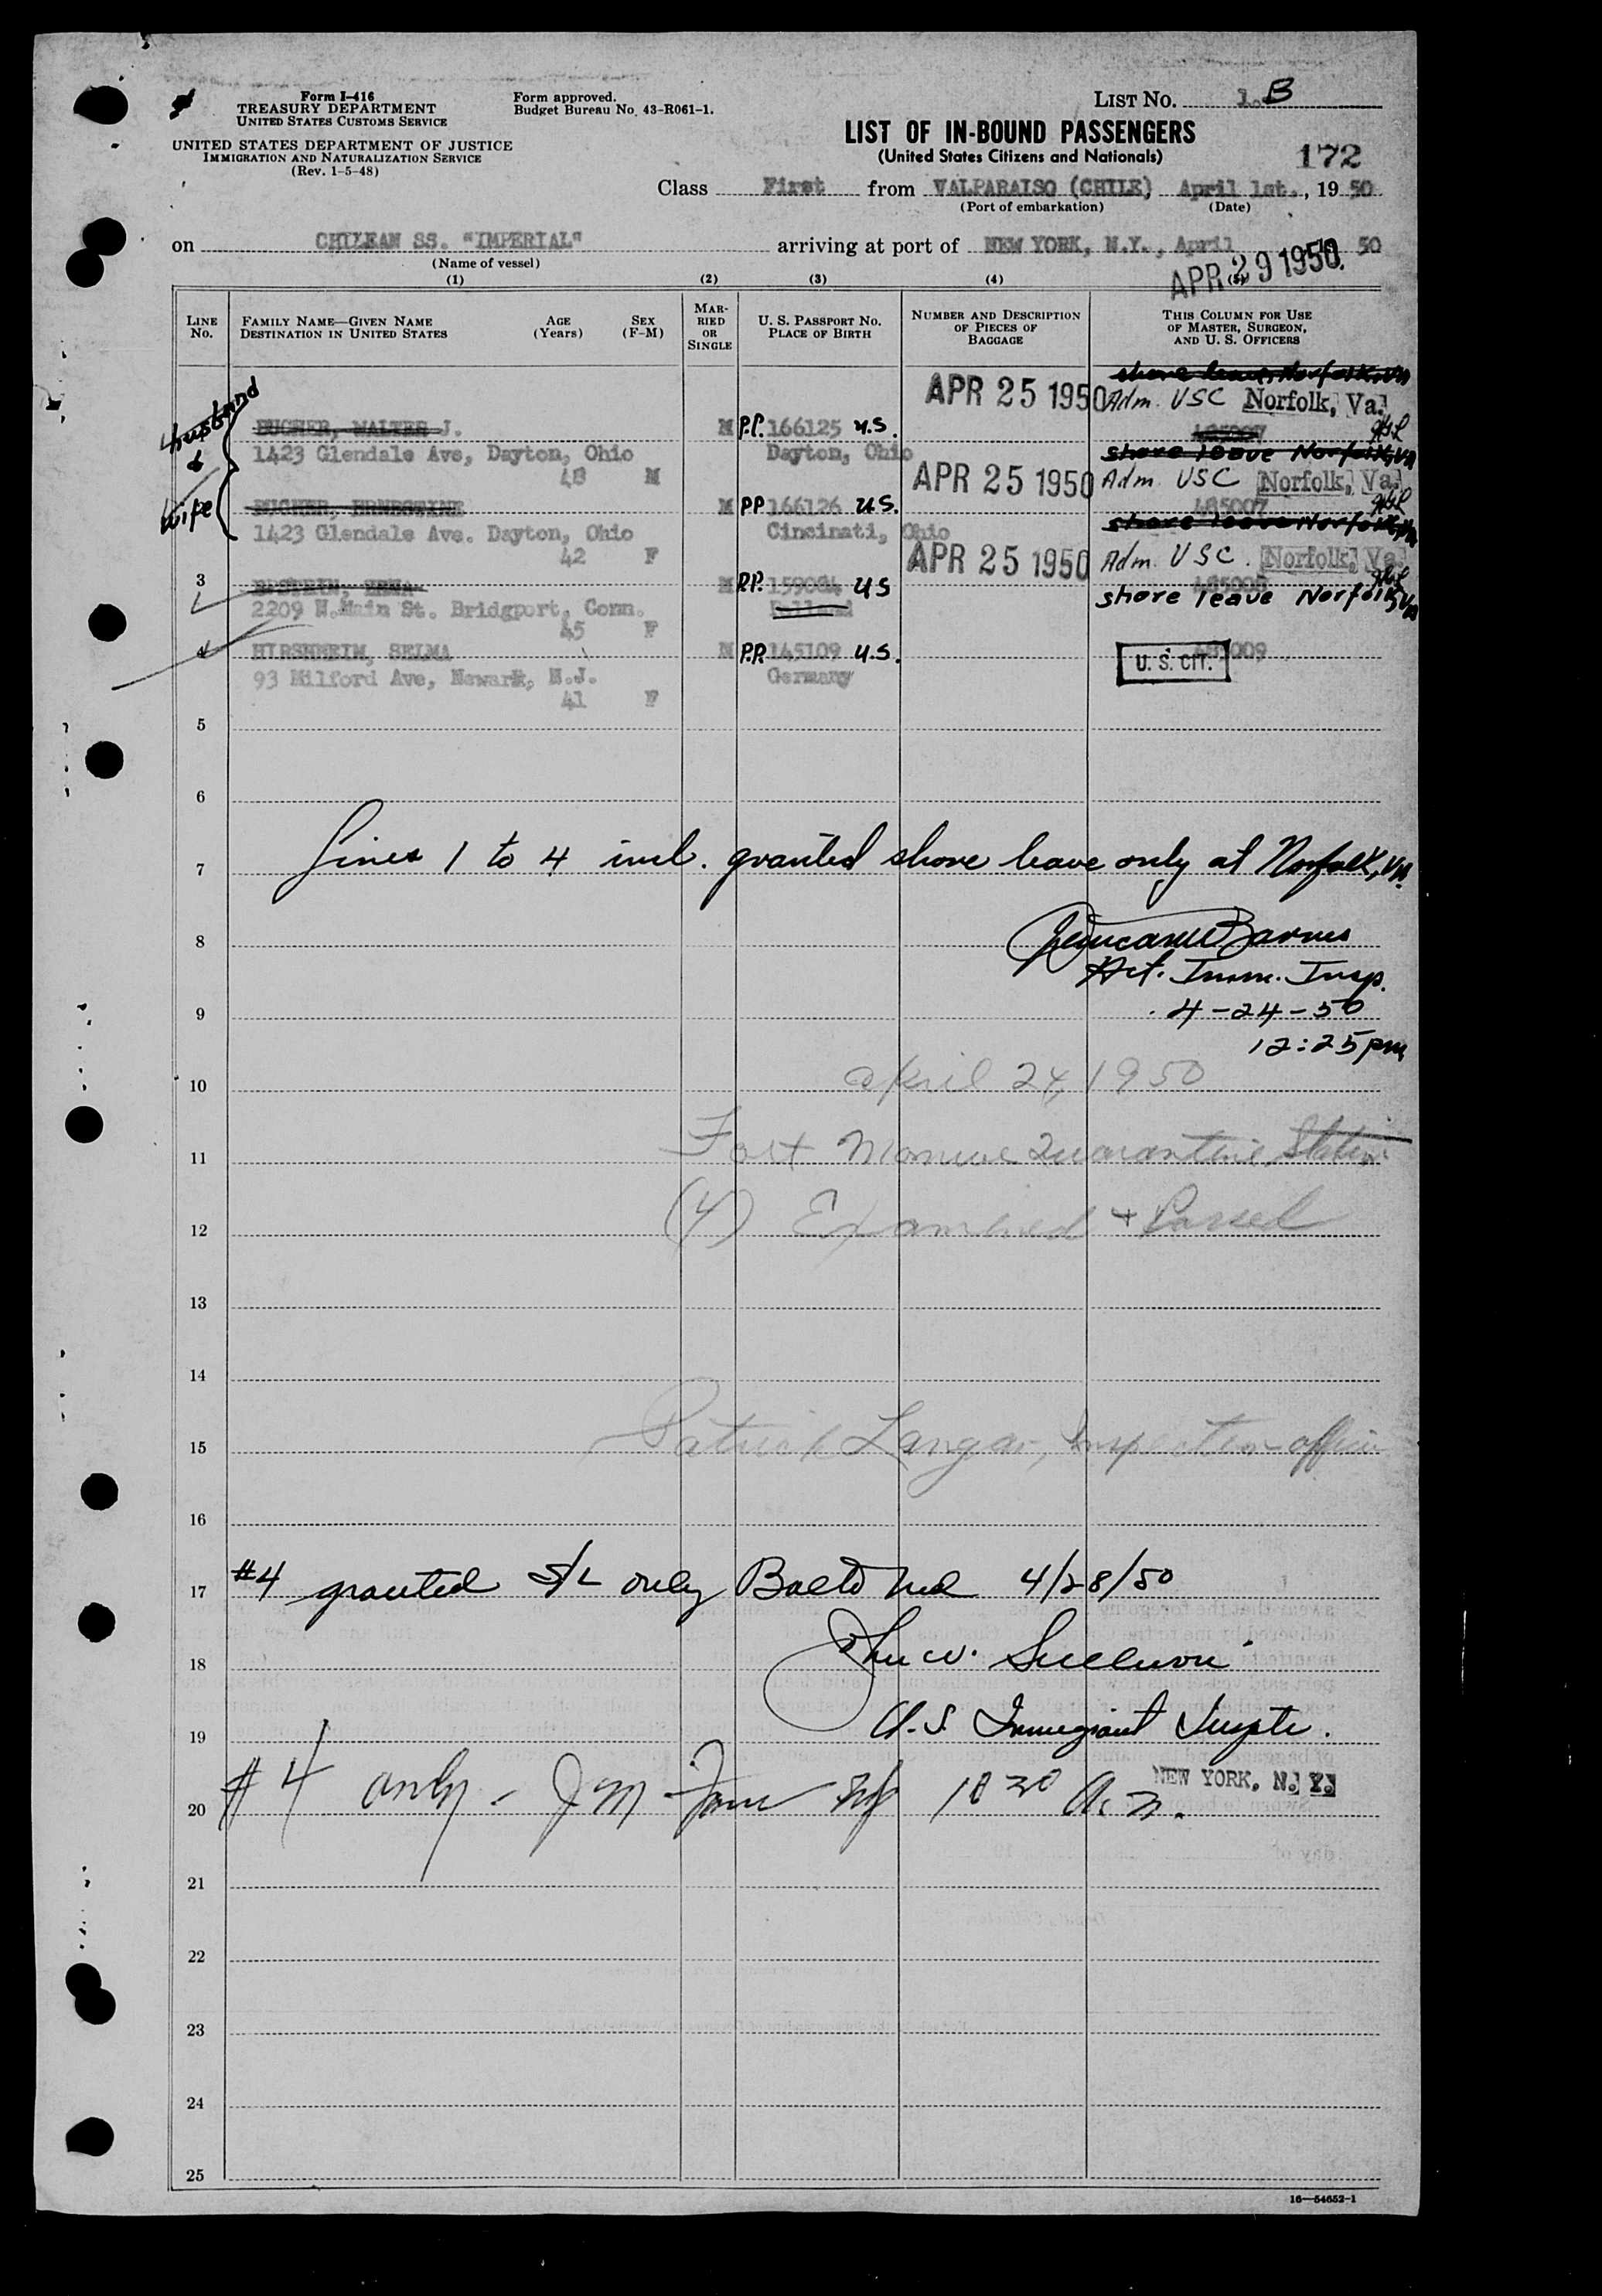 Form I-416
TREASURY DEPARTMENT
UNITED STATES CUSTOMS SERVICE
UNITED STATES DEPARTMENT OF JUSTICE
IMMIGRATION AND NATURALIZATION SERVICE
(Rev. 1-5-48)
Form approved.
Budget Bureau No. 43-R061-1.
LIST NO. 1. B
LIST OF IN-BOUND PASSENGERS
(United States Citizens and Nationals)
172
Class First from VALPARAISO (CHILE) April 1st., 19 50
(Port of embarkation) (Date)
on CHILEAN SS. "IMPERIAL" arriving at port of NEW YORK, N.Y., April 50
(Name of vessel)
APR 29 1950.
(1) (2) (3) (4) (5)
LINE NO.
FAMILY NAME—GIVEN NAME
DESTINATION IN UNITED STATES
AGE (Years)
SEX (F-M)
MARRIED OR SINGLE
U. S. PASSPORT NO.
PLACE OF BIRTH
NUMBER AND DESCRIPTION OF PIECES OF BAGGAGE
THIS COLUMN FOR USE OF MASTER, SURGEON, AND U. S. OFFICERS
shore leave Norfolk, Va
APR 25 1950 Adm. USC Norfolk, Va.
Husband & wife
BUCHER, WALTER J. M P.P. 166125 U.S. 485007
1423 Glendale Ave, Dayton, Ohio Dayton, Ohio shore leave Norfolk, Va
48 M APR 25 1950 Adm. USC Norfolk, Va.
BUCHER, ERNESTINE M PP 166126 U.S. 485007
1423 Glendale Ave. Dayton, Ohio Cincinati, Ohio shore leave Norfolk, Va
42 F APR 25 1950 Adm. USC. Norfolk, Va.
3 EPSTEIN, M P.P. 159084 U S 485008
2209 N.Main St. Bridgport, Conn. Poland shore leave Norfolk, Va
45 F
4 HIRSHHEIM, SELMA M P.P. 145109 U.S. U. S. CIT. 485009
93 Milford Ave, Newark, N.J. Germany
41 F
5
6
7 Lines 1 to 4 incl. granted shore leave only at Norfolk, Va.
8 Barnes
Act. Imm. Insp.
9 4-24-50
12:25 pm
10 April 24, 1950
11 Fort Monroe Quarantine Station
12 (4) Examined + Passed
13
14
15 Patrick Langan, Inspection officer
16
17 #4 granted S/L only Balto Md 4/28/50
18 John W. Sullivan
19 U.S. Immigrant Insptr.
20 #4 only - 10 30 A.M. NEW YORK, N. Y.
21
22
23
24
25
16—54652-1